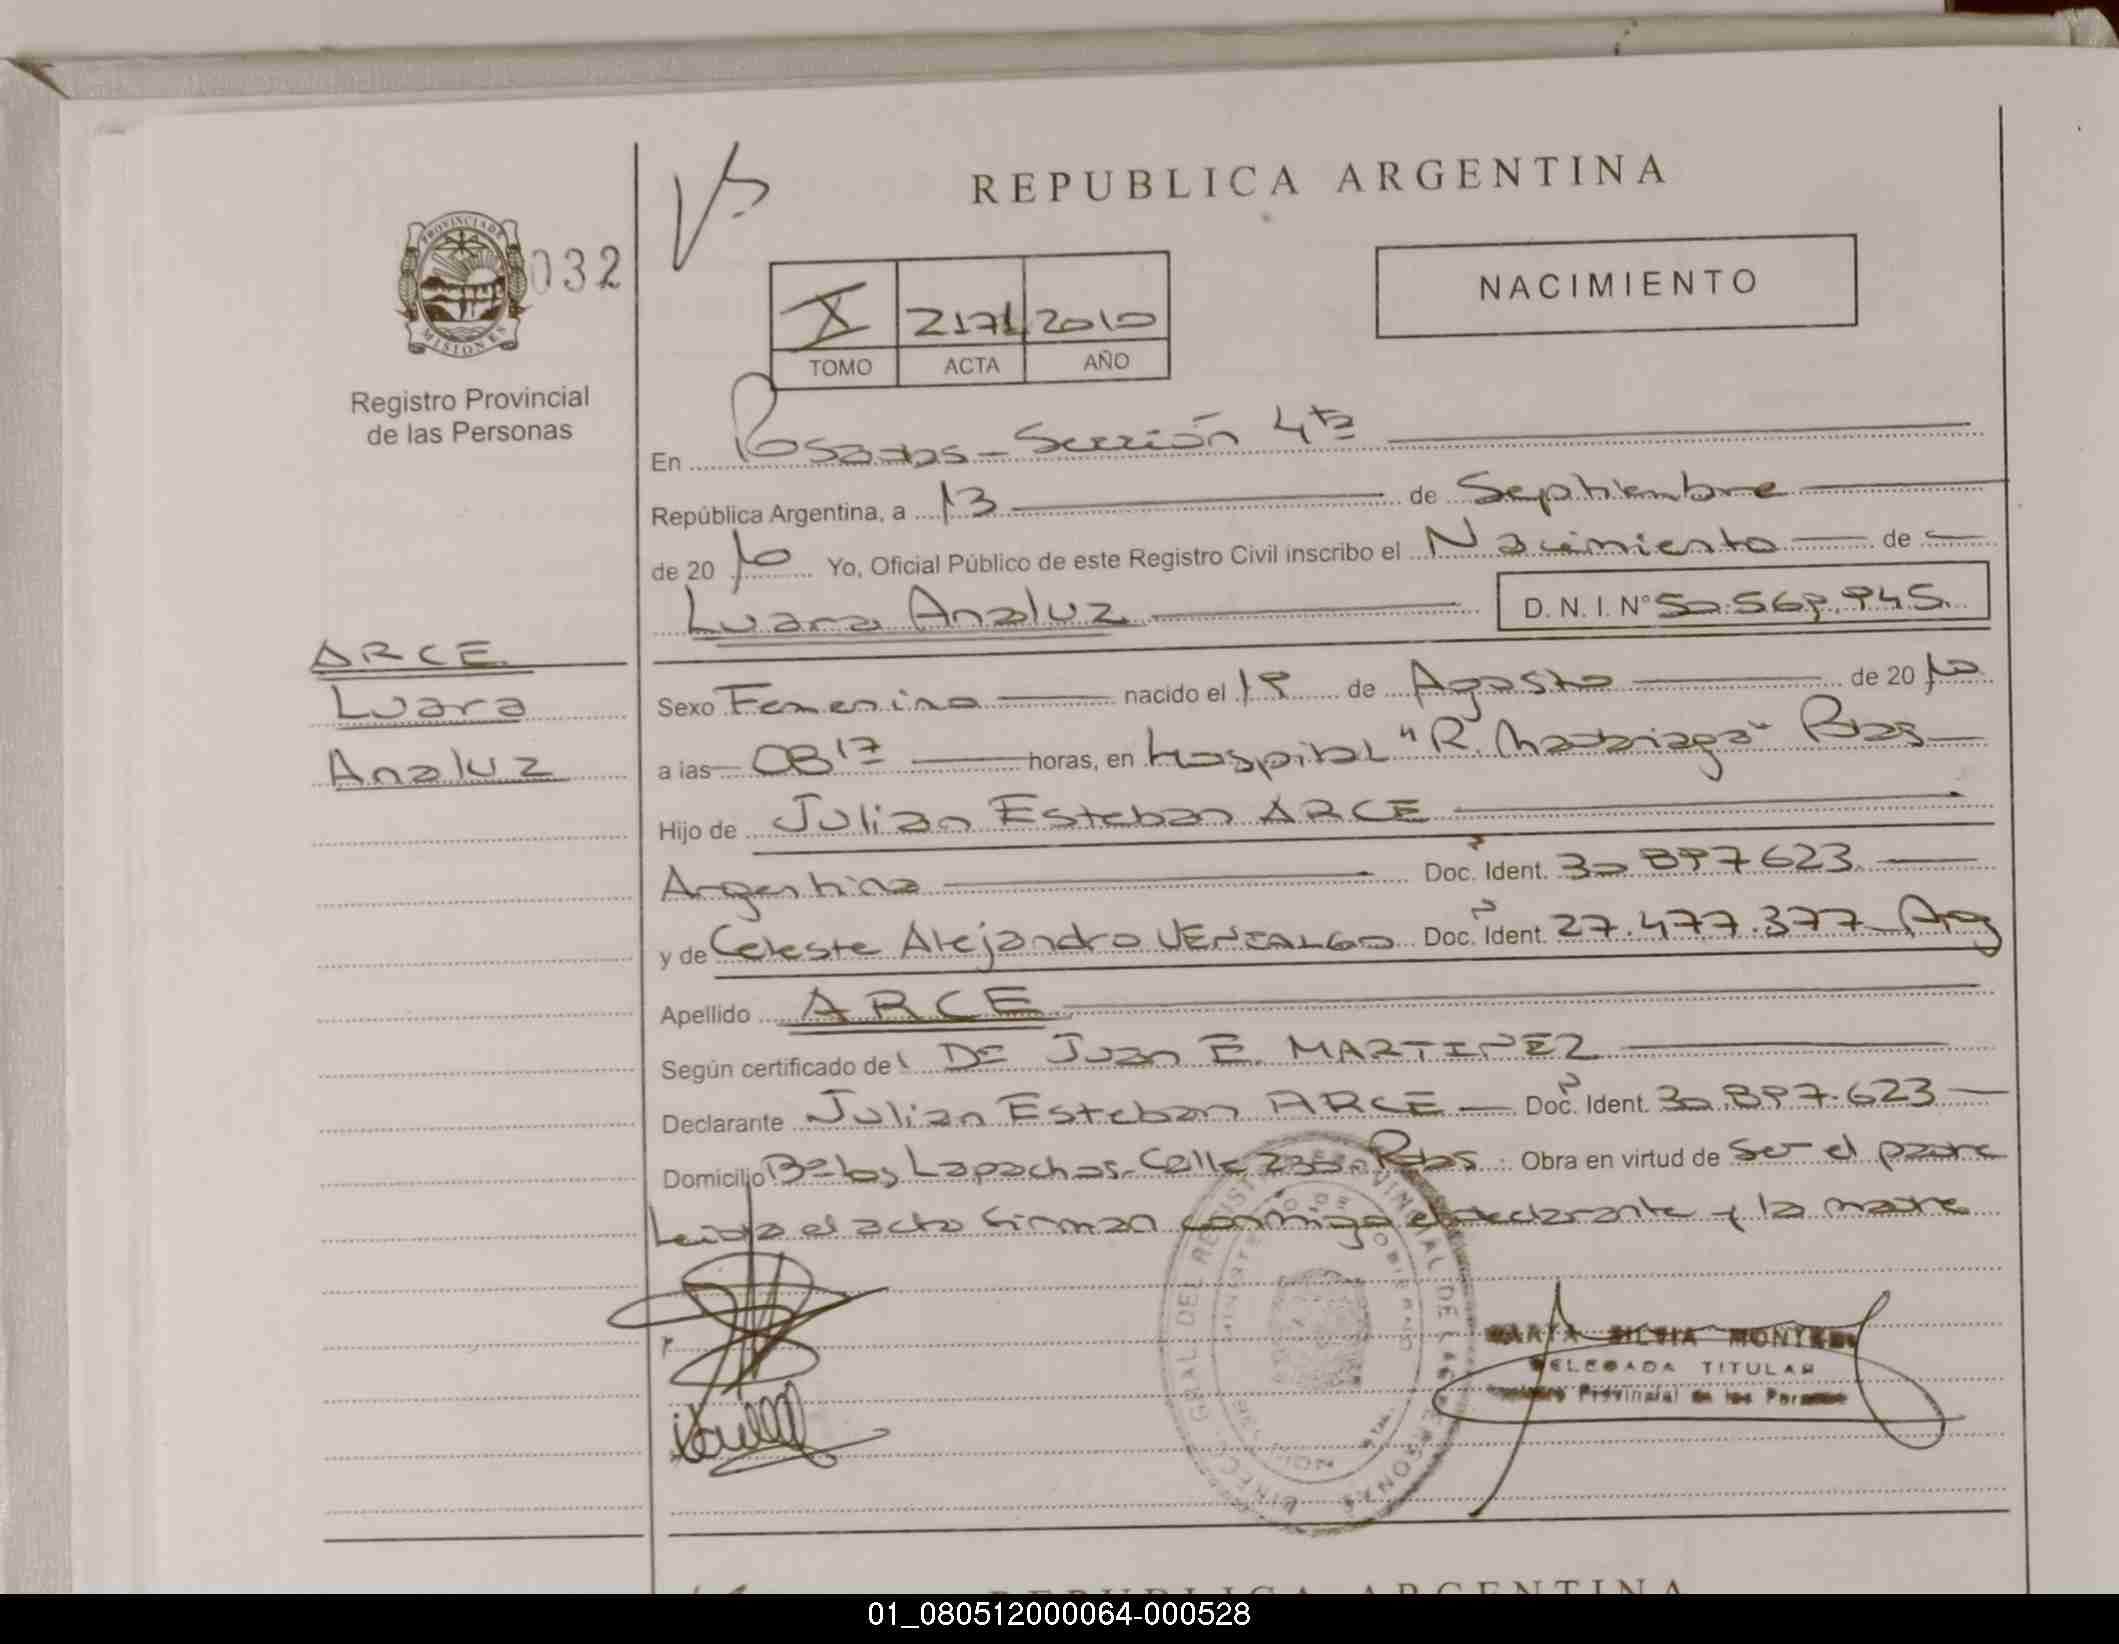 REPUBLICA ARGENTINA
PROVINCIA DE MISIONES
032
NACIMIENTO
X 2171 2010
TOMO ACTA AÑO
Registro Provincial
de las Personas
En Posadas - Sección 4ta
República Argentina, a 13 de Septiembre
de 20 10 Yo, Oficial Público de este Registro Civil inscribo el Nacimiento de
Luara Analuz D. N. I. Nº
ARCE
Luara
Analuz
Sexo Femenino nacido el de Agosto de 20 10
a las 08 17 horas, en Hospital "R. Madariaga" Pdas
Hijo de Julian Esteban ARCE
Argentina Doc. Ident. 30.897.623
y de Celeste Alejandra Doc. Ident. 27.477.377 Arg
Apellido ARCE
Según certificado del Dr Juan E. MARTINEZ
Declarante Julian Esteban ARCE Doc. Ident. 30.897.623
Domicilio Bº los Lapachos - Calle Pdas Obra en virtud de ser el padre
Leida el acta firman conmigo el declarante y la madre
MARTA SILVIA MONTIEL
DELEGADA TITULAR
Registro Provincial de las Personas
REPUBLICA ARGENTINA
01_080512000064-000528